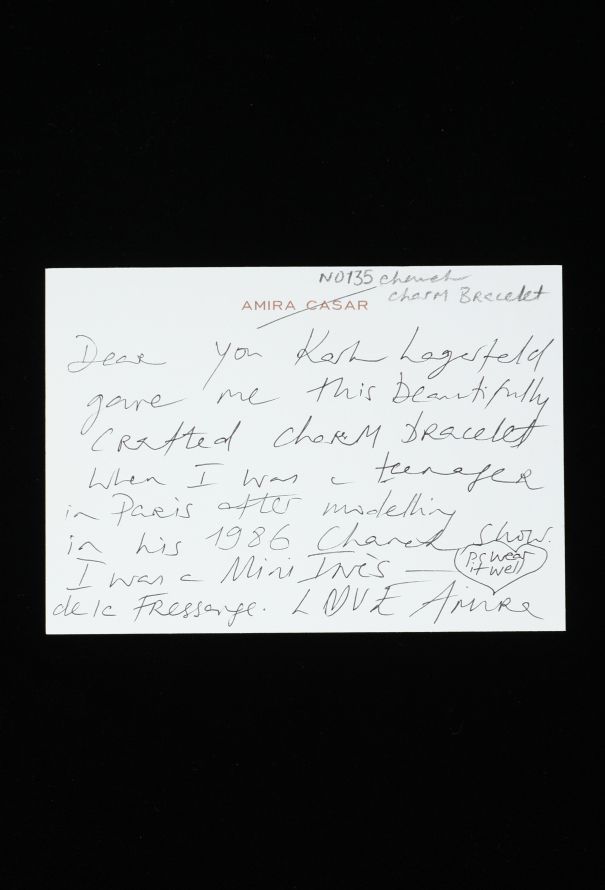 NO135 Chanel
Charm Bracelet
AMIRA CASAR
Dear You Karl Lagerfeld
gave me this beautifully
crafted charm bracelet
when I was a teenager
in Paris after modelling
in his 1986 Chanel show.
I was a Mini Inès —
PS wear
it well
de la Fressange. LOVE Amira